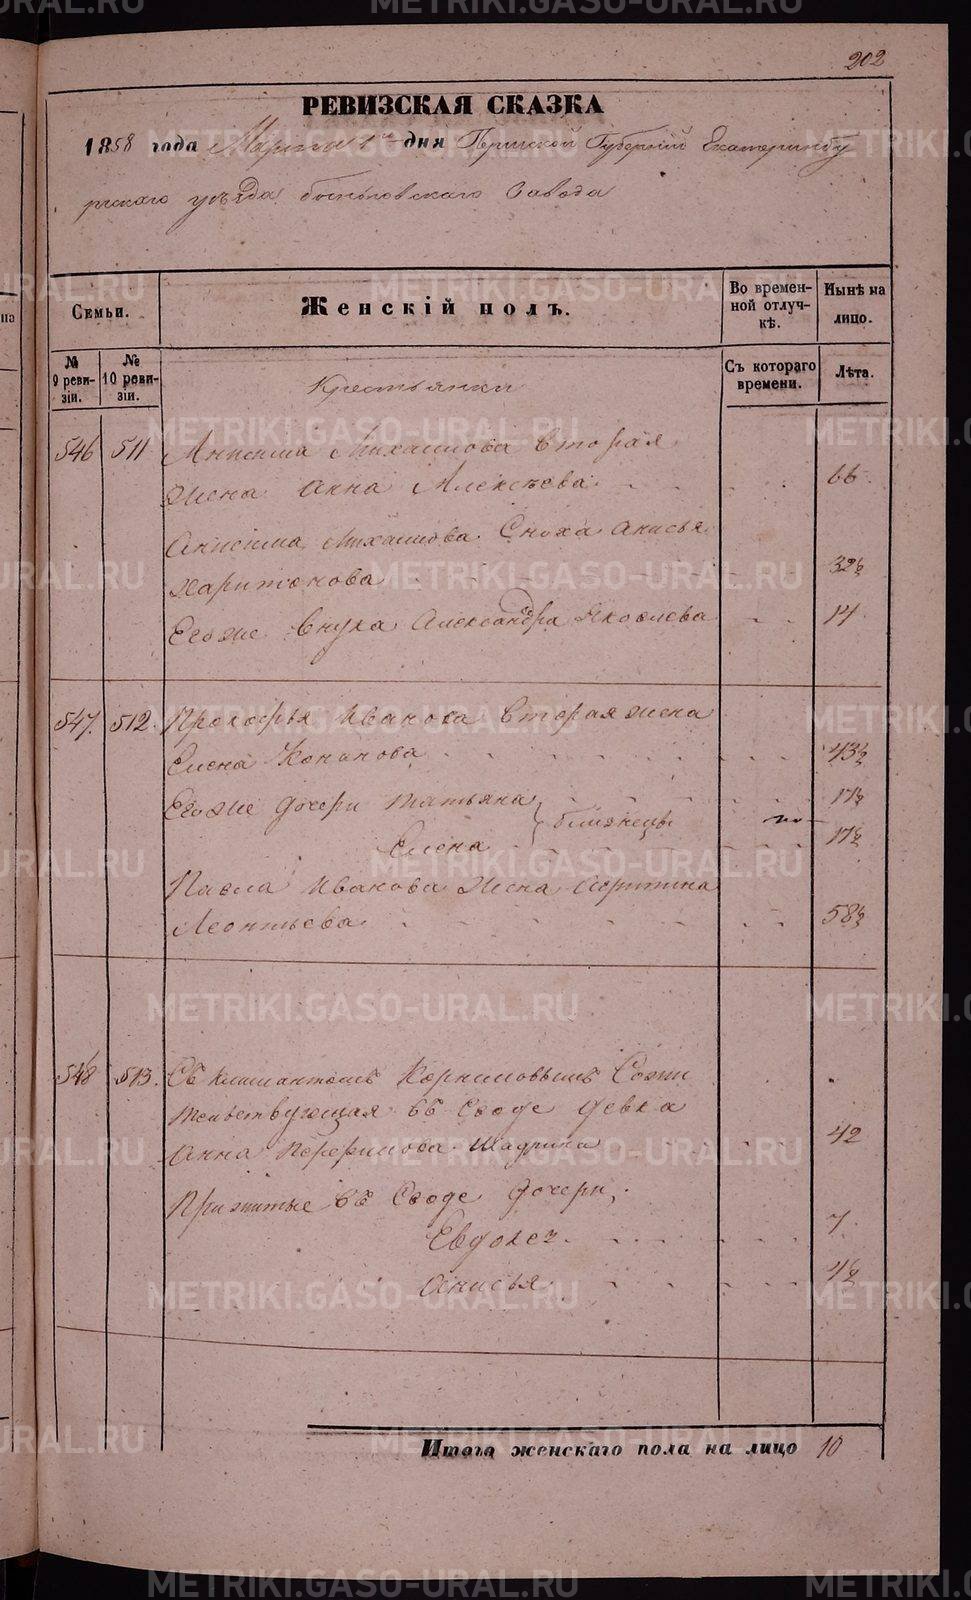 202
РЕВИЗСКАЯ СКАЗКА
1858 года Марта 1го дня Пермской Губернiи Екатеринбу
ргскаго уѣзда завода
Семьи.
Женскiй полъ.
Во времен-
ной отлуч-
кѣ.
Нынѣ на
лицо.
№
9 реви-
зiи.
№
10 реви-
зiи.
Съ котораго
времени.
Лѣта.
Крестьянки
546 511 Анисима Михаилова вторая
жена Анна Алексѣева 66
Анисима Михаилова Сноха Анисья
Харитонова 32½
Егоже внука Александра Яковлева 14
547. 512. Прокофья Иванова вторая жена
Елена Кононова 43½
Егоже дочери Татьяна 17½
Елена близнецы 17½
Павла Иванова жена
Леонтьева 58½
548 513. Съ Корниловымъ Сожи
тельствующая въ Сводѣ девка
Анна 42
Прижитые въ Сводѣ дочери,
Евдокея 7
Анисья 4½
Итого женскаго пола на лицо 10
METRIKI.GASO-URAL.RU